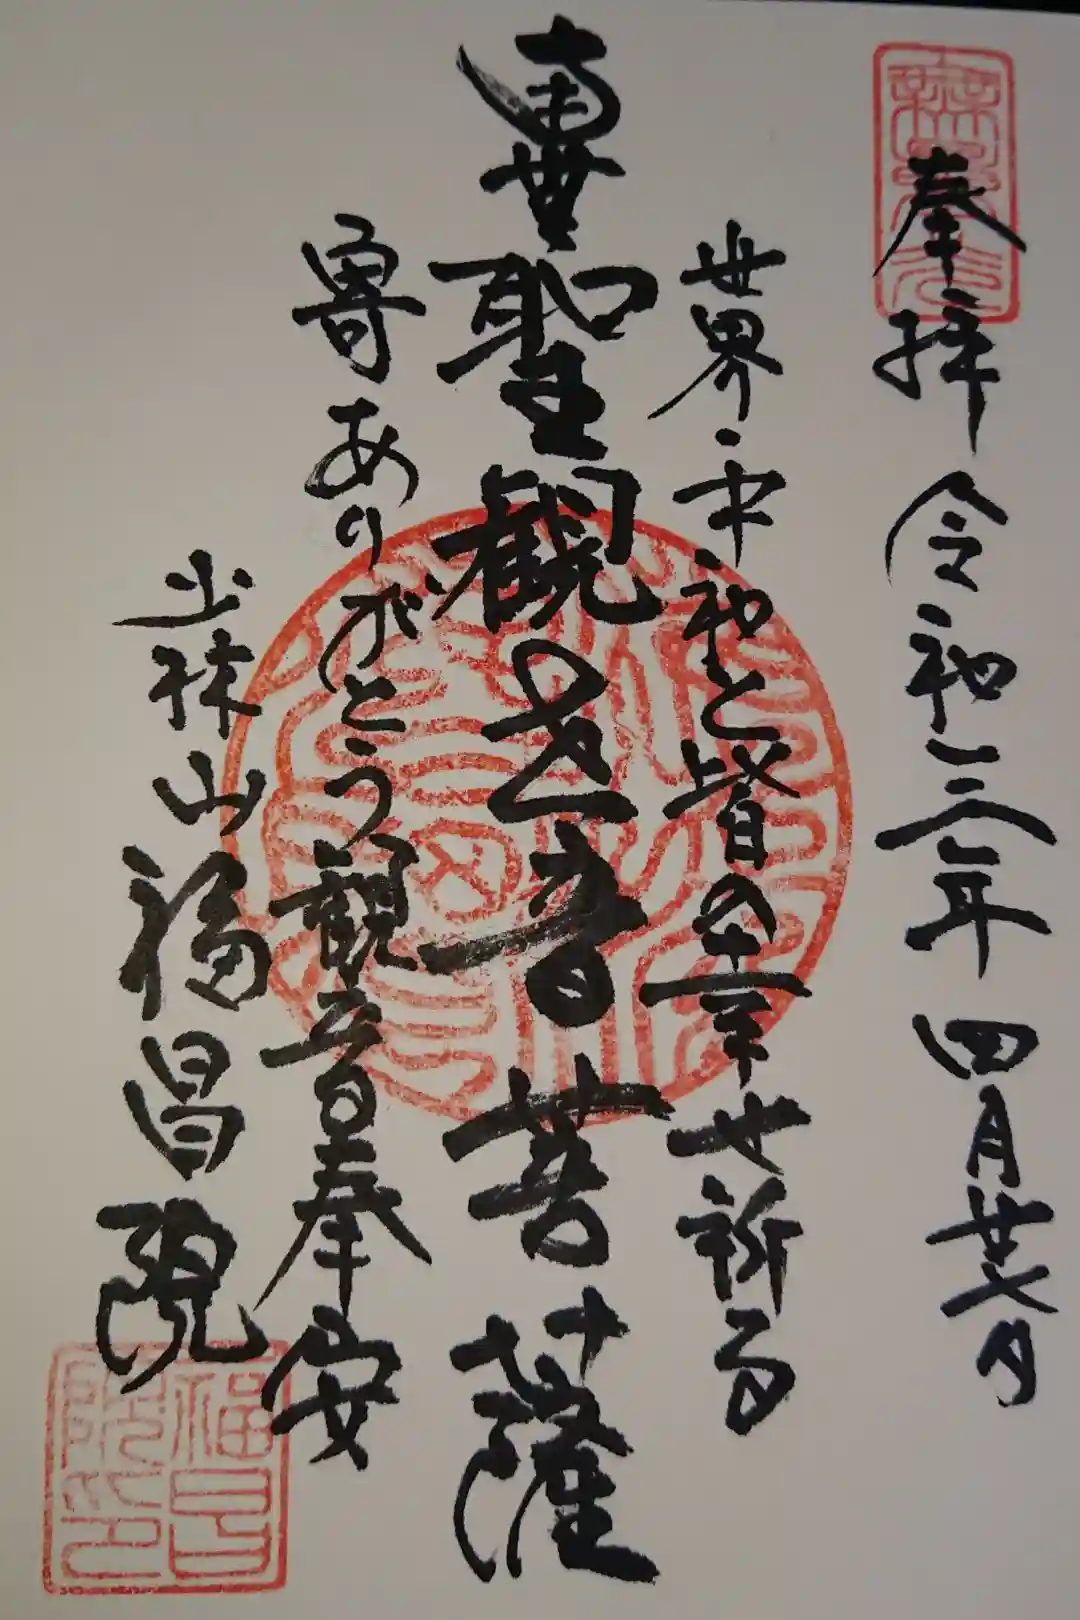 奉拝 令和三年四月廿七日
世界平和と皆の幸せ祈る
南無聖観世音菩薩
寄ありがとう観音奉安
林山 福昌院
福昌院印